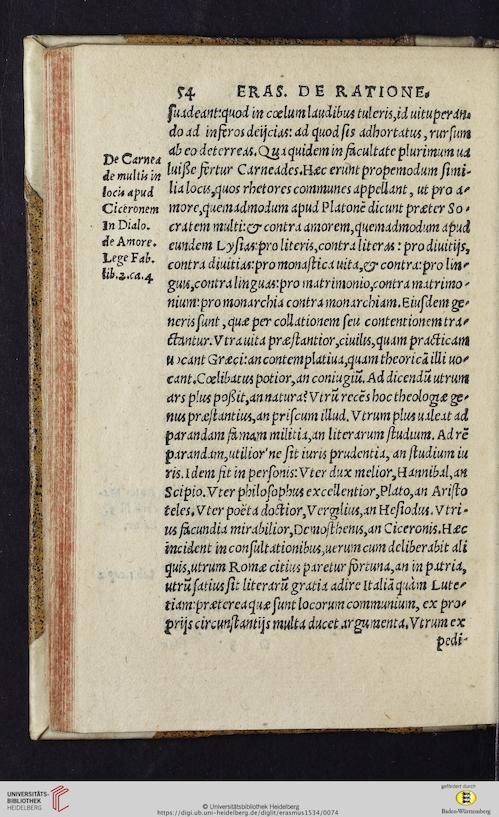 54 ERAS. DE RATIONE.
suadeant: quod in cœlum laudibus tuleris, id uituperan⸗
do ad inferos deijcias: ad quod sis adhortatus, rursum
ab eo deterreas. Qua quidem in facultate plurimum ua
luiße fertur Carneades. Hæc erunt propemodum simi⸗
lia locis, quos rhetores communes appellant, ut pro a⸗
more, quemadmodum apud Platonē dicunt præter So⸗
cratem multi: & contra amorem, quemadmodum apud
eundem Lysias: pro literis, contra literas: pro diuitijs,
contra diuitias: pro monastica uita, & contra: pro lin⸗
guis, contra linguas: pro matrimonio, contra matrimo⸗
nium: pro monarchia contra monarchiam. Eiusdem ge⸗
neris sunt, quæ per collationem seu contentionem tra⸗
ctantur. Vtra uita præstantior, ciuilis, quam practicam
uocant Græci: an contemplatiua, quam theoricā illi uo⸗
cant. Cœlibatus potior, an coniugiū. Ad dicendū utrum
ars plus poßit, an natura? Vtrū recēs hoc theologiæ ge⸗
nus præstantius, an priscum illud. Vtrum plus ualeat ad
parandam famam militia, an literarum studium. Ad rē
parandam, utilior'ne sit iuris prudentia, an studium iu
ris. Idem fit in personis: Vter dux melior, Hannibal, an
Scipio. Vter philosophus excellentior, Plato, an Aristo
teles. Vter poëta doctior, Vergilius, an Hesiodus. Vtri⸗
us facundia mirabilior, Demosthenis, an Ciceronis. Hæc
incident in consultationibus, uerum cum deliberabit ali
quis, utrum Romæ citius paretur fortuna, an in patria,
utrū satius sit literarū gratia adire Italiā quàm Lute⸗
tiam: præterea quæ sunt locorum communium, ex pro⸗
prijs circunstantijs multa ducet argumenta. Vtrum ex
pedi-
De Carnea
de multis in
locis apud
Ciceronem
In Dialo.
de Amore.
Lege Fab.
lib.2.ca.4
UNIVERSITÄTS-
BIBLIOTHEK
HEIDELBERG
© Universitätsbibliothek Heidelberg
https://digi.ub.uni-heidelberg.de/diglit/erasmus1534/0074
gefördert durch
Baden-Württemberg